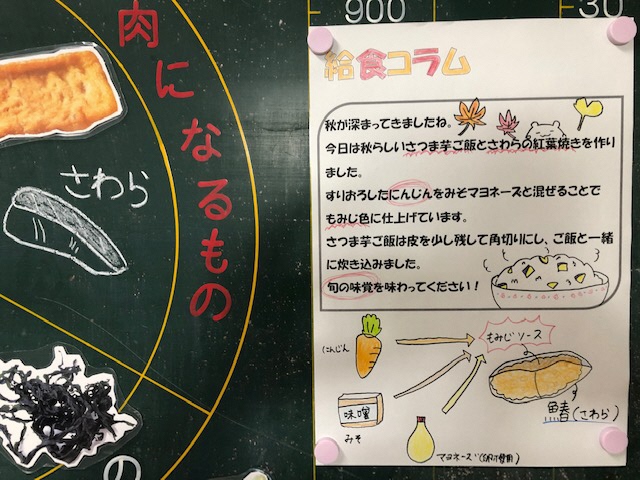 900
30
肉になるもの
さわら
の
給食コラム
秋が深まってきましたね。
今日は秋らしいさつま芋ご飯とさわらの紅葉焼きを作り
ました。
すりおろしたにんじんをみそマヨネーズと混ぜることで
もみじ色に仕上げています。
さつま芋ご飯は皮を少し残して角切りにし、ご飯と一緒
に炊き込みました。
旬の味覚を味わってください！
にんじん
もみじソース
味噌
みそ
鰆(さわら)
マヨネーズ